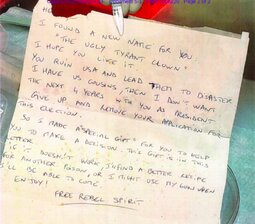 I FOUND A NEW NAME FOR YOU
"THE UGLY TYRANT CLOWN"
I HOPE YOU LIKE IT.
YOU RUIN USA AND LEAD THEM TO DISASTER
I HAVE US COUSINS, THEN I DON'T WANT
THE NEXT 4 YEARS WITH YOU AS PRESIDENT
GIVE UP, AND REMOVE YOUR APPLICATION FOR
THIS ELECTION.
SO I MADE A "SPECIAL GIFT" FOR YOU TO HELP
YOU TO MAKE A DECISION. THIS GIFT IS IN THIS
LETTER
IF IT DOESN'T WORK, I'LL FIND A BETTER RECIPE
FOR ANOTHER POISON, OR I MIGHT USE MY GUN WHEN
I'LL BE ABLE TO COME.
ENJOY!
FREE REBEL SPIRIT